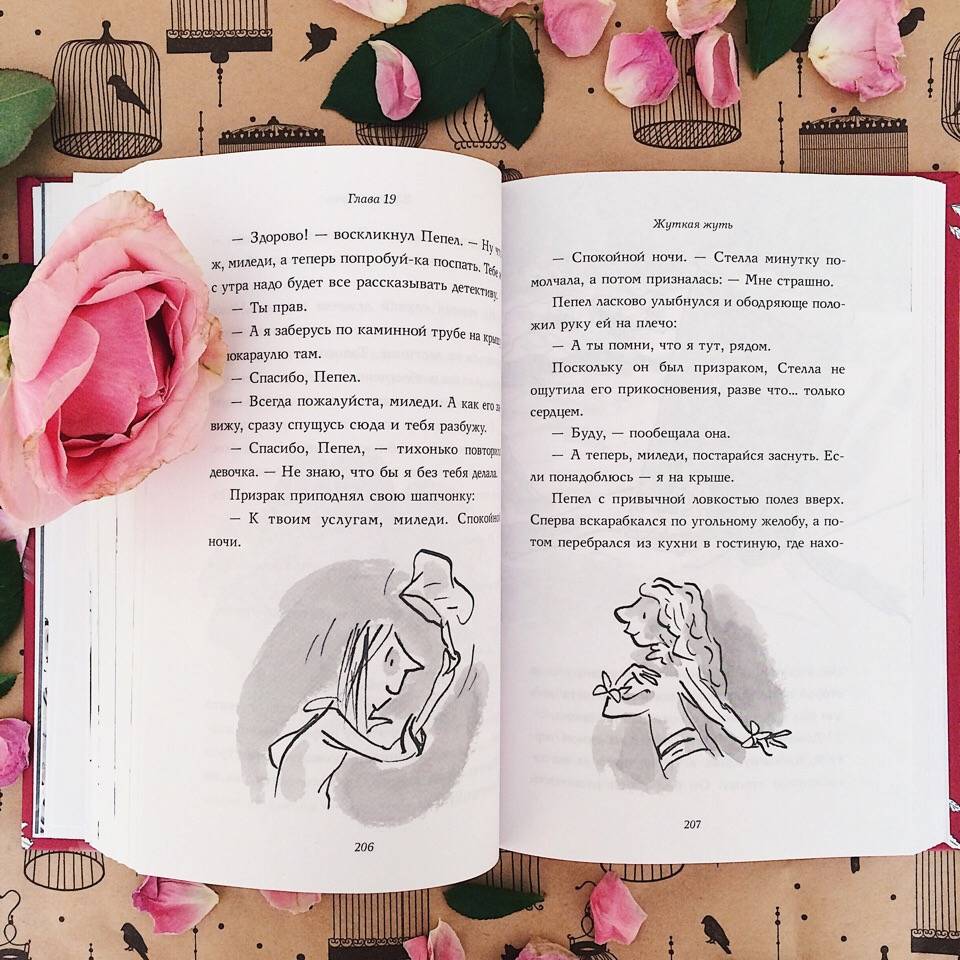 Глава 19
— Здорово! — воскликнул Пепел. — Ну
ж, миледи, а теперь попробуй-ка поспать. Тебе
с утра надо будет все рассказывать детективу.
— Ты прав.
— А я заберусь по каминной трубе на
покараулю там.
— Спасибо, Пепел.
— Всегда пожалуйста, миледи. А как его
вижу, сразу спущусь сюда и тебя разбужу.
— Спасибо, Пепел, — тихонько
девочка. — Не знаю, что бы я без тебя делала.
Призрак приподнял свою шапчонку:
— К твоим услугам, миледи. Спокойной
ночи.
206
Жуткая жуть
— Спокойной ночи. — Стелла минутку по-
молчала, а потом призналась: — Мне страшно.
Пепел ласково улыбнулся и ободряюще поло-
жил руку ей на плечо:
— А ты помни, что я тут, рядом.
Поскольку он был призраком, Стелла не
ощутила его прикосновения, разве что... только
сердцем.
— Буду, — пообещала она.
— А теперь, миледи, постарайся заснуть. Ес-
ли понадоблюсь — я на крыше.
Пепел с привычной ловкостью полез вверх.
Сперва вскарабкался по угольному желобу, а по-
том перебрался из кухни в гостиную, где нахо-
207